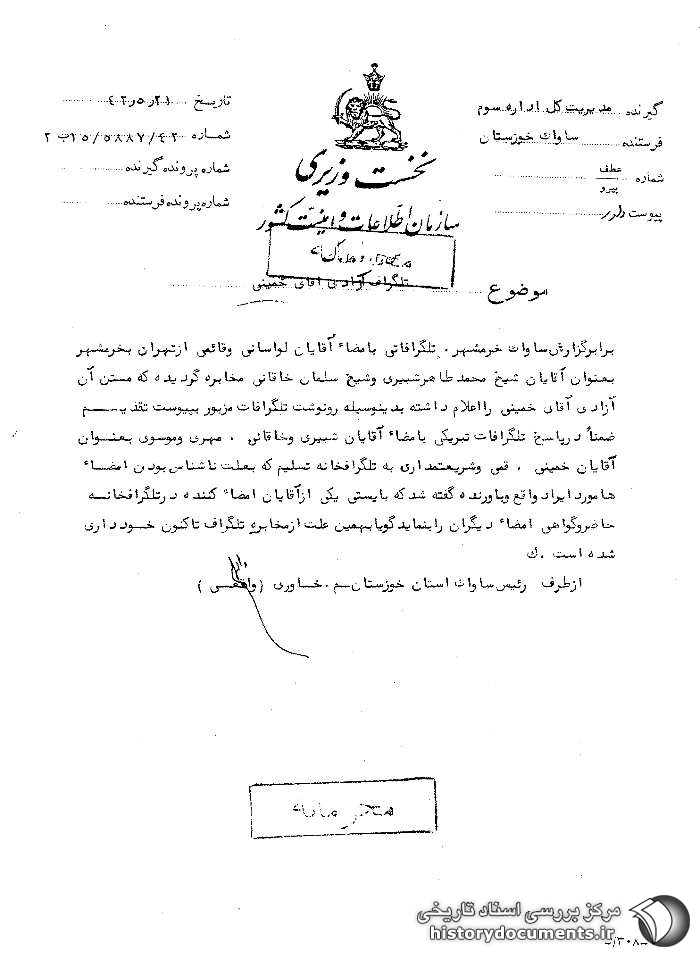 گیرنده مدیریت کل اداره سوم
فرستنده ساواک خوزستان
شماره عطف
پیرو
پیوست دارد
نخست وزیری
سازمان اطلاعات و امنیت کشور
تاریخ ۴۲ر۵ر۲۱
شماره ۲۵/۵۸۸۷/۴۲ب ۲
شماره پرونده گیرنده
شماره پرونده فرستنده
موضوع تلگراف آزادی آقای خمینی
برابر گزارش ساواک خرمشهر . تلگرافاتی بامضاء آقایان لواسانی وقائمی ازتهران بخرمشهر
بعنوان آقایان شیخ محمد طاهر شبیری وشیخ سلمان خاقانی مخابره گردیده که متن آن
آزادی آقای خمینی را اعلام داشته بدینوسیله رونوشت تلگرافات مزبور بپیوست تقدیم
ضمناً درپاسخ تلگرافات تبریکی بامضاء آقایان شبیری وخاقانی . مهری وموسوی بعنوان
آقایان خمینی . قمی وشریعتمداری به تلگرافخانه تسلیم که بعلت ناشناس بودن امضاء
ها مورد ایراد واقع وبآورنده گفته شد که بایستی یکی ازآقایان امضاء کننده درتلگرافخانه
حاضروگواهی امضاء دیگران را بنماید گویا بهمین علت ازمخابره تلگراف تاکنون خودداری
شده است . ک
ازطرف رئیس ساواک استان خوزستان م . خساوری (واقفی)
محرمانه
مرکز بررسی اسناد تاریخی
historydocuments.ir
۳۰۸